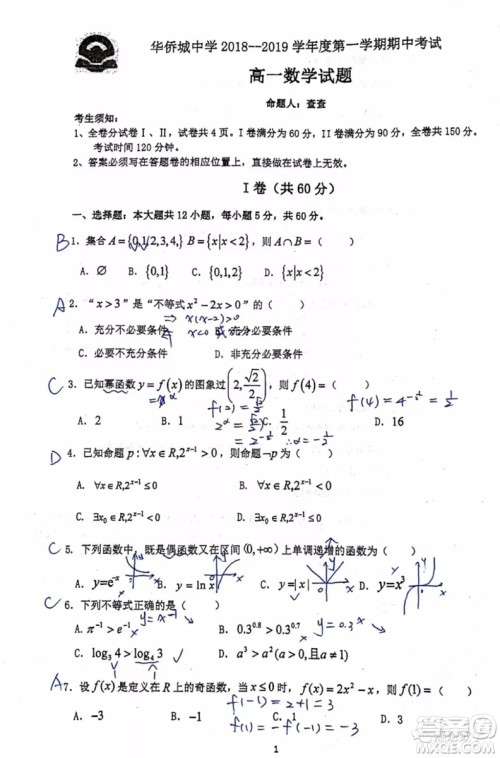 华侨城中学2018--2019学年度第一学期期中考试
高一数学试题
命题人：查查
考生须知：
1、全卷分试卷Ⅰ、Ⅱ，试卷共4页。Ⅰ卷满分为60分，Ⅱ卷满分为90分，全卷共150分。
考试时间120分钟。
2、答案必须写在答题卷的相应位置上，直接做在试卷上无效。
Ⅰ卷（共60分）
一、选择题：本大题共12小题，每小题5分，共60分
B 1. 集合A={0,1,2,3,4,} B={x|x<2}，则A∩B=（ ）
A. ∅ B. {0,1} C. {0,1,2} D. {x|x<2}
A 2. “x>3”是“不等式x²-2x>0”的（ ）
⇒ x(x-2)>0
A. 充分不必要条件 B. 充分必要条件
x<0 或 x>2
C. 必要不充分条件 D. 非充分必要条件
C 3. 已知幂函数y=f(x)的图象过(2, √2/2)，则f(4)=（ ）
=x^α f(2)=√2/2 f(4)=4^-½=½
A. 2 B. 1 C. 1/2 D. 16
2^α=√2/2 ∴α=-½
D 4. 已知命题p:∀x∈R,2^(x-1)>0，则命题¬p为（ ）
A. ∀x∈R,2^(x-1)≤0 B. ∀x∈R,2^(x-1)<0
C. ∃x₀∈R,2^(x-1)>0 D. ∃x₀∈R,2^(x-1)≤0
C 5. 下列函数中，既是偶函数又在区间(0,+∞)上单调递增的函数为（ ）
A. y=e^-x B. y=ln x C. y=|x| D. y=x³
C 6. 下列不等式正确的是（ ）
A. π⁻¹>e⁻¹ y=x⁻¹ B. 0.3^0.8>0.3^0.7 y=0.3^x
C. log₃4>log₄3 D. a³>a²(a>0,且a≠1)
A 7. 设f(x)是定义在R上的奇函数，当x≤0时，f(x)=2x²-x，则f(1)=（ ）
f(-1)=2+1=3
A. -3 B. -1 C. 1 D. 3
-f(-1)=-3
1